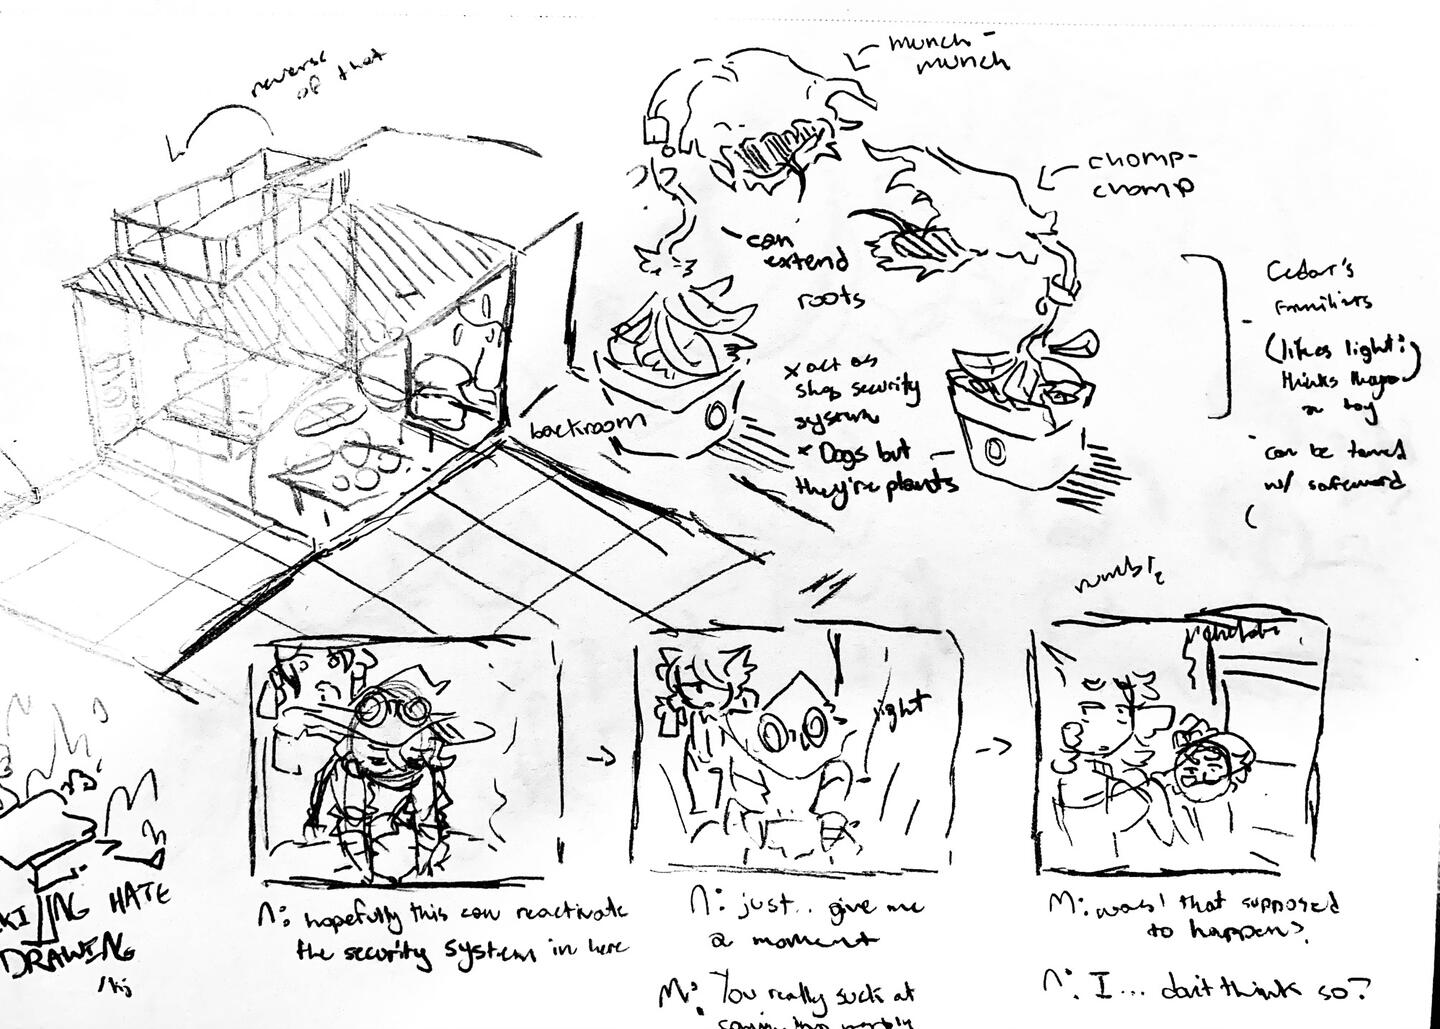 reverse
of that
munch-
munch
chomp-
chomp
can
extend
roots
x act as
shop security
system
x Dogs but
they're plants
backroom
Cedar's
familiars
(likes light:)
thinks
a toy
can be tamed
w/ safeword
light
rumble
KING HATE
DRAWING
/hj
N: hopefully this can reactivate
the security system in here
N: just.. give me
a moment
M: You really suck at
M: was that supposed
to happen?
N: I... don't think so?